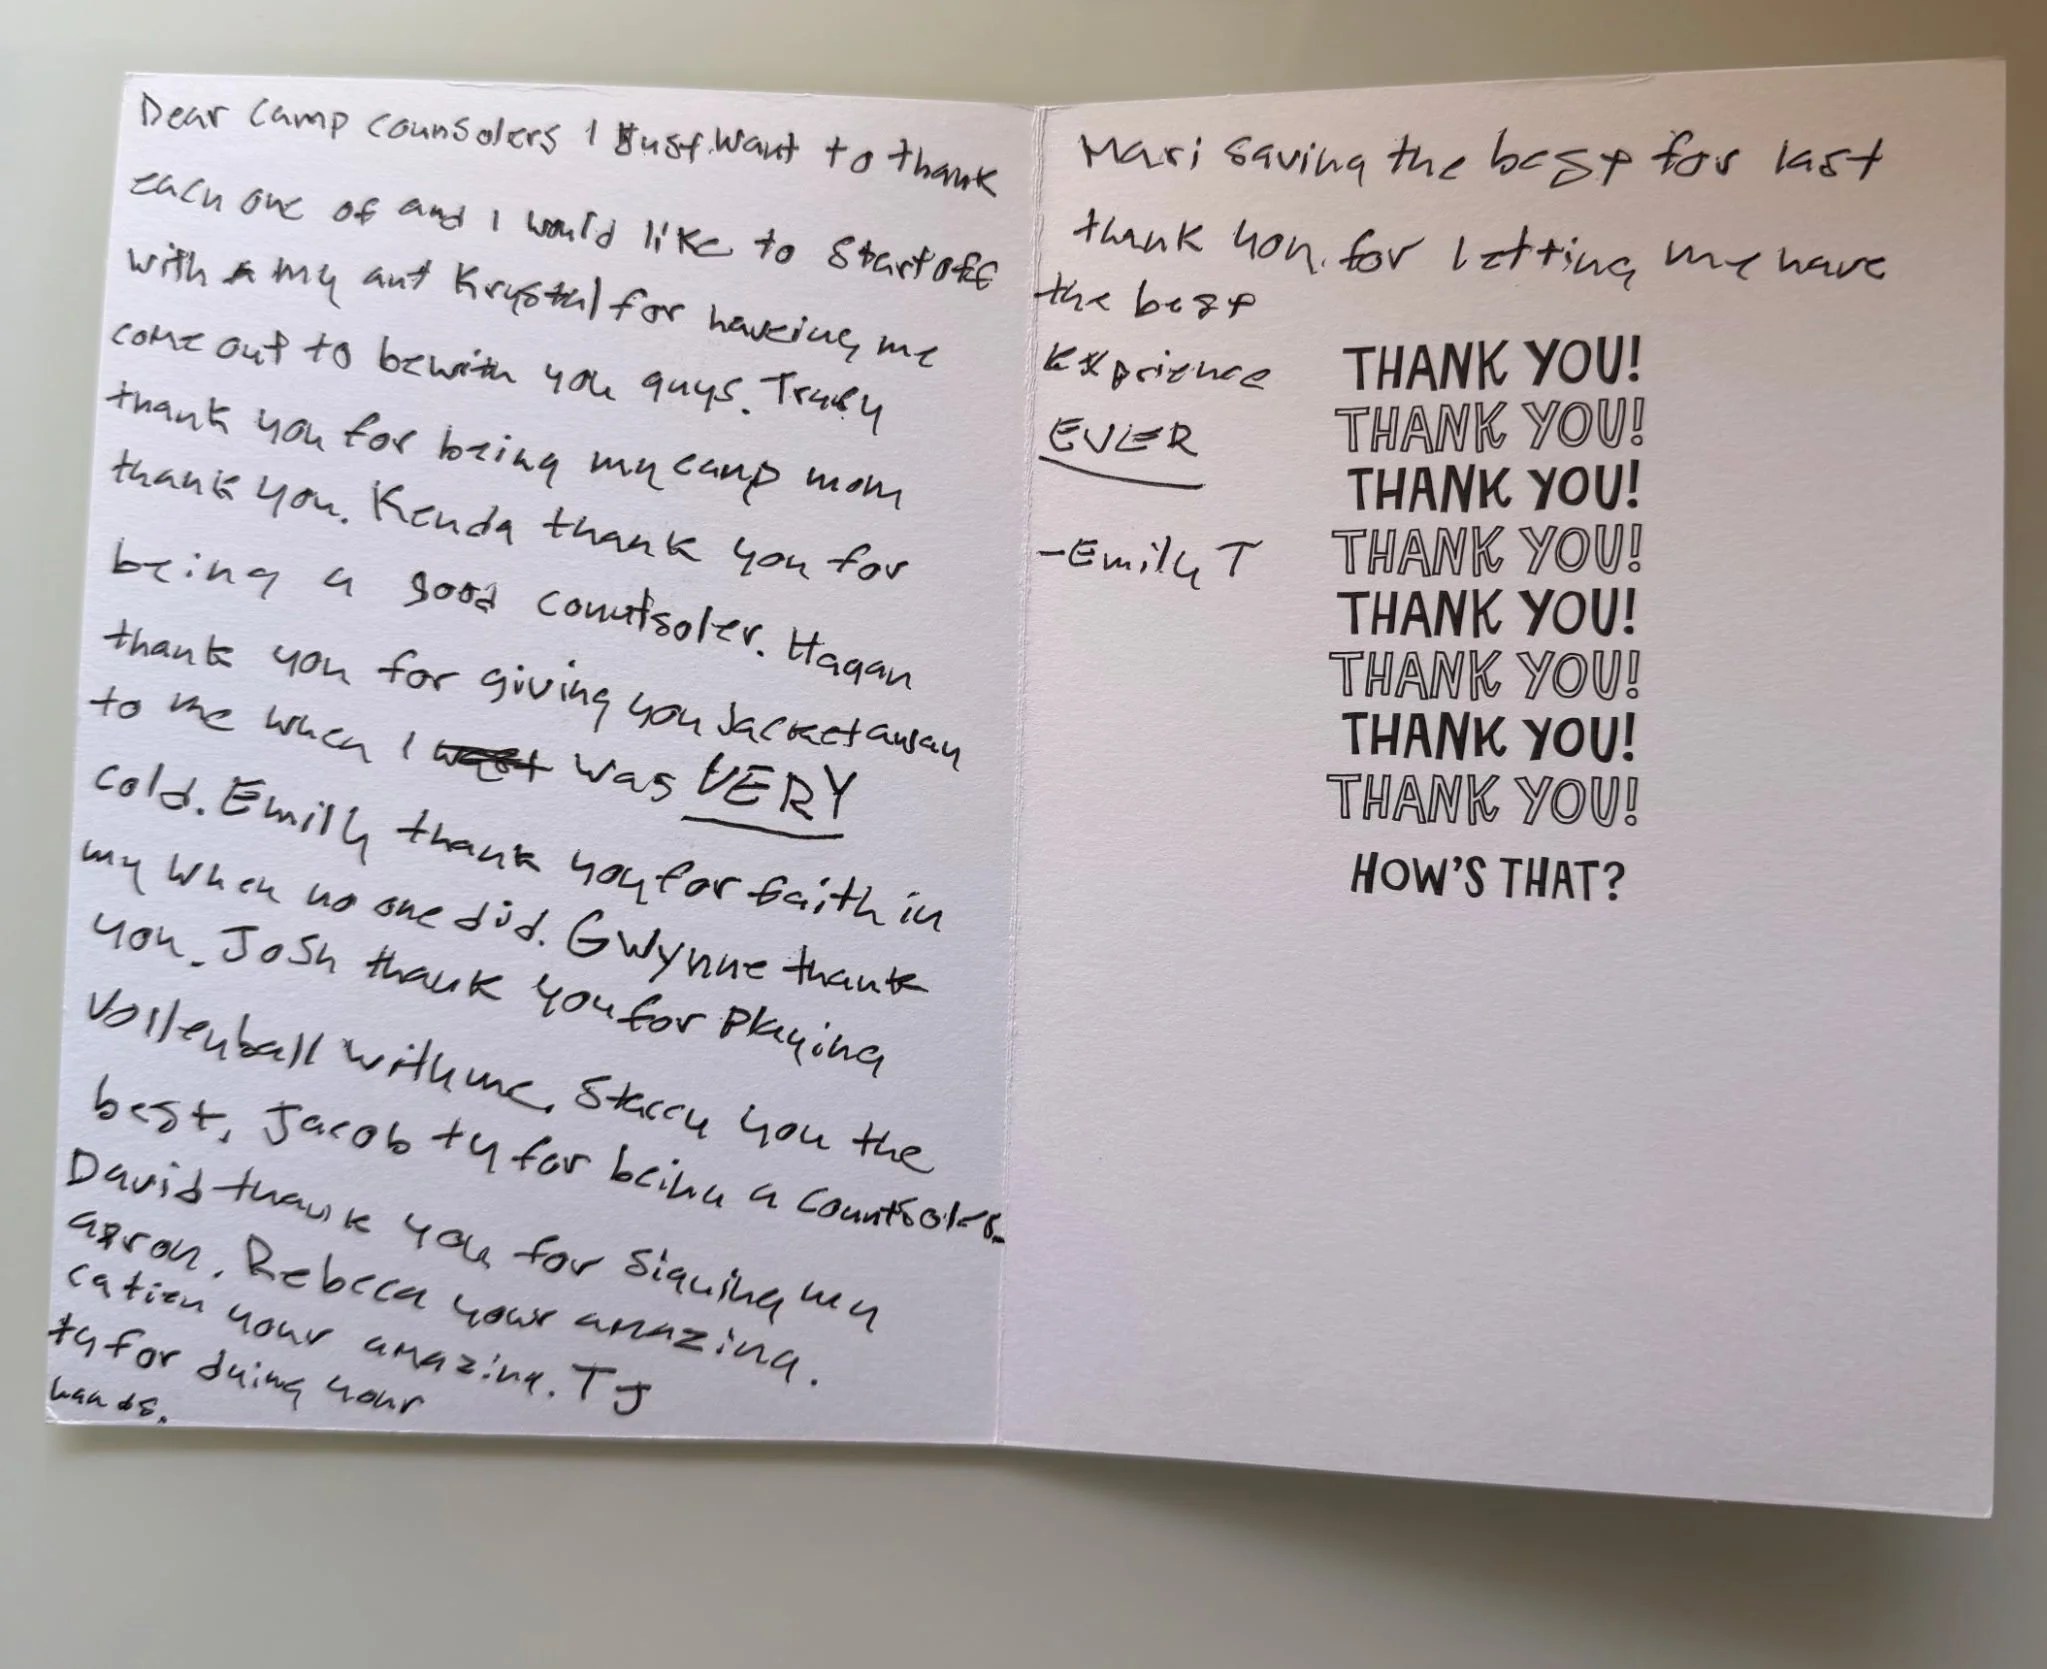 Dear Camp counsolers I Just want to thank
each one of and I would like to start off
with my ant Krystal for haveing me
come out to be with you guys. Truly
thank you for being my camp mom
thank you. Kenda thank you for
being a good countsoler. Hagan
thank you for giving you jacket away
to me when I was VERY
cold. Emily thank you for faith in
my when no one did. Gwynne thank
you. Josh thank you for Playing
Volleyball with me. Staccy you the
best. Jacob ty for being a countsoler.
David thank you for signing my
apron. Rebecca your amazing.
catien your amazing. TJ
ty for duing your
hands.
Mari saving the best for last
thank you for letting me have
the best
Exprience
EVER
-Emily T
THANK YOU!
THANK YOU!
THANK YOU!
THANK YOU!
THANK YOU!
THANK YOU!
THANK YOU!
THANK YOU!
HOW'S THAT?